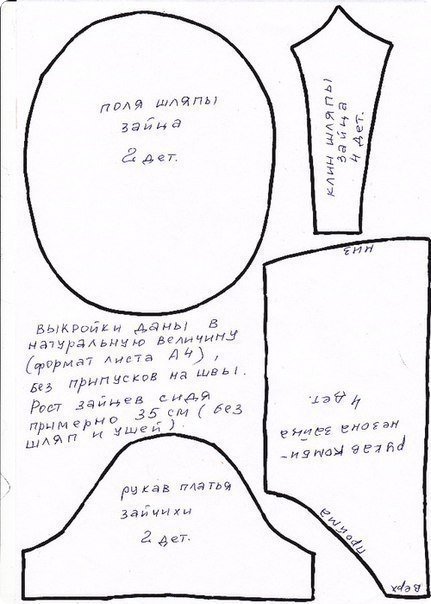 поля шляпы
зайца
2 дет.
клин шляпы
зайца
4 дет.
низ
выкройки даны в
натуральную величину
(формат листа А4),
без припусков на швы.
Рост зайцев сидя
примерно 35 см (без
шляп и ушей).
рукав комби-
незона зайца
4 дет.
пройма
верх
рукав платья
зайчихи
2 дет.